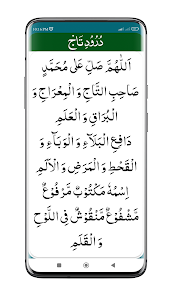 10:16 PM
دُرُودِ تَاج
اَللّٰهُمَّ صَلِّ عَلٰى مُحَمَّدٍ
صَاحِبِ التَّاجِ وَ الْمِعْرَاجِ وَ
الْبُرَاقِ وَ الْعَلَمِ
دَافِعِ الْبَلَآءِ وَ الْوَبَآءِ وَ
الْقَحْطِ وَ الْمَرَضِ وَ الْاَلَمِ
اِسْمُهٗ مَكْتُوْبٌ مَرْفُوْعٌ
مَشْفُوْعٌ مَنْقُوْشٌ فِي اللَّوْحِ
وَ الْقَلَمِ